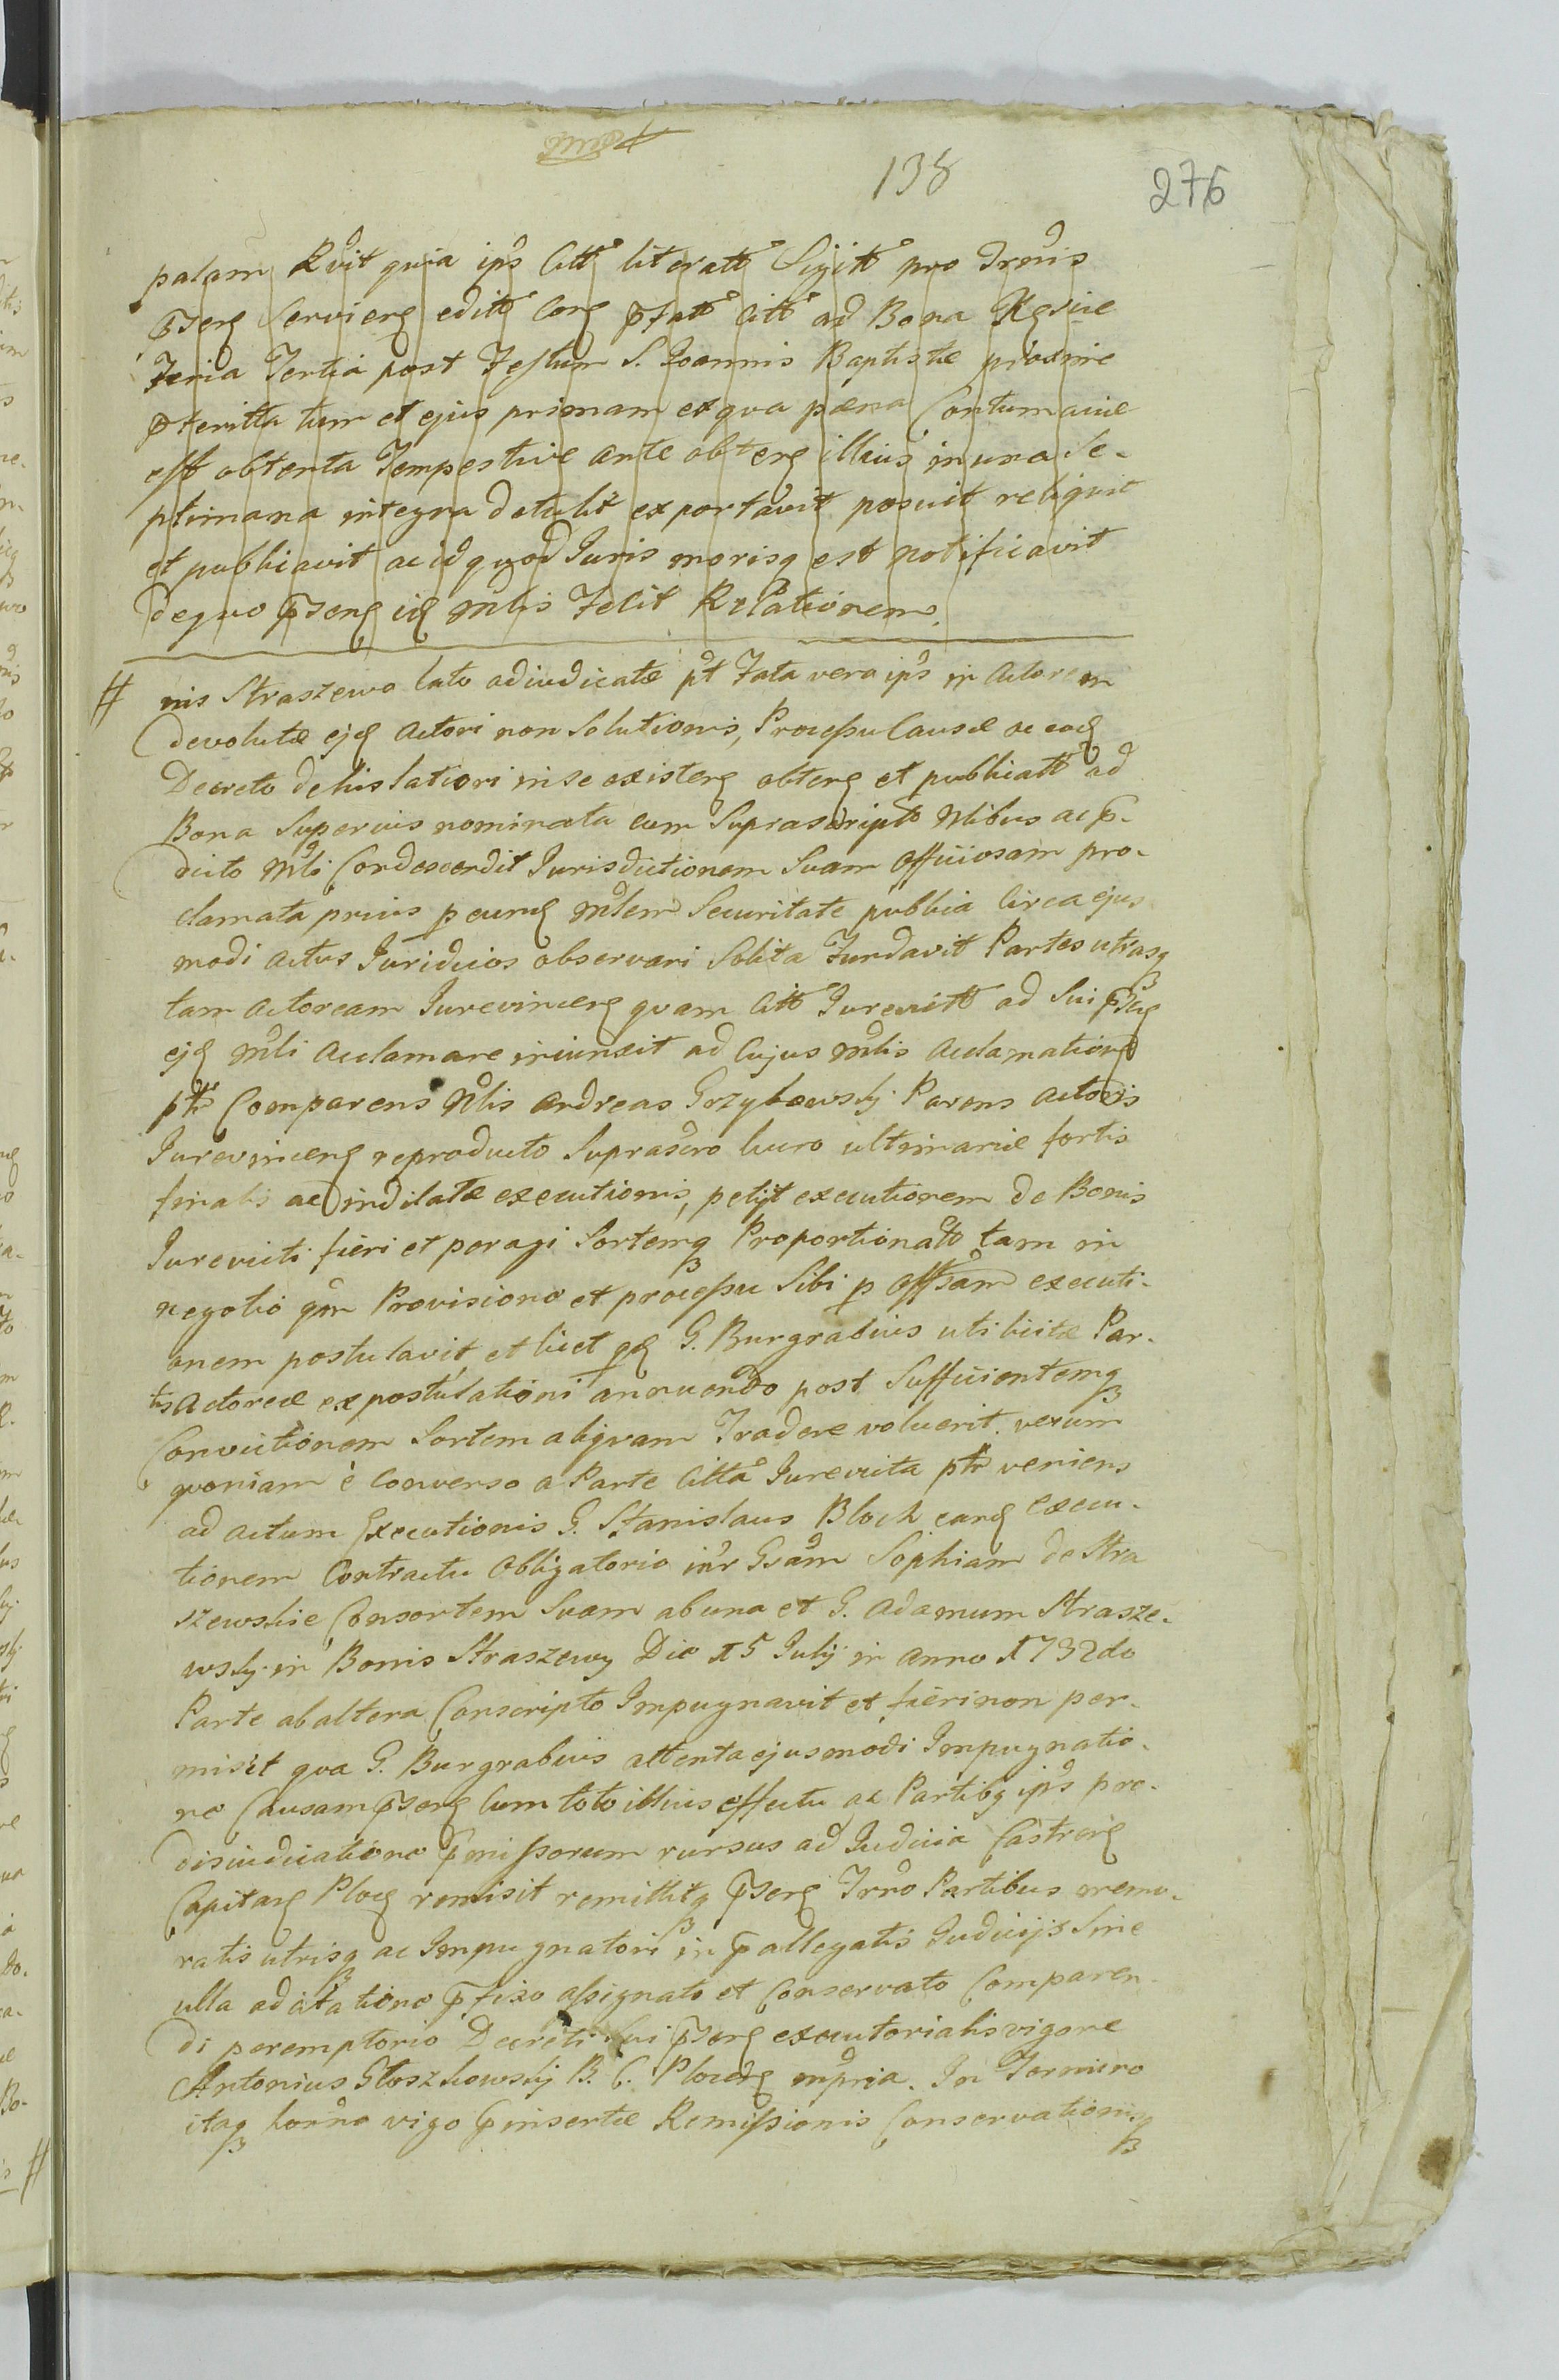 138
276
palam Rvit quia ips Citt literatt Sigitt pro Trnis
pserg Servierg editt Corg pfatt Citt ad Bona Kęsice
Feria Tertia post Festum S. Joannis Baptistæ proxime
pteritta tum et ejus primam ex qva pæna Contumaciæ
est obtenta Tempestive ante obterg illius in una Se-
ptimana integra detulit exportavit posuit reliquit
et publicavit ac id qvod Juris morisq est notificavit
de qvo pserg idg Mlis Fecit Relationem.
# nis Straszewo lato adiudicatæ pt Fata vera ips in Actorem
devolutæ ejd Actori non Solutionis, Processu Causæ ac eodg
Decreto de his latiori in se existerg obterg et publicatt ad
Bona Superius nominata cum Suprascripto Nlibus ac p-
dicto Mli Condescendit Jurisdictionem Suam officiosam pro-
clamata prius p eundg Mlem Securitate publica Circa ejus
modi actus Juridicos observari Solita Fundavit Partes utrasq
tam Actoream Jurevincerg qvam Citt Jurevitt ad Sui psg
ejd Mli Acclamare iniunxit ad Cujus Mlis Acclamationg
ptr Comparens Nlis Andreas Grzybowsky Parens Actoris
Jurevincerg reproducto Suprascro lucro ultimariæ fortis
finalis ac indilatæ executionis, petijt executionem de Bonis
Jurevicti fieri et peragi Sortemq Proportionatt tam in
negotio qm Provisione et processu Sibi p offsam executi-
onem postulavit, et licet qd G. Burgrabius uti licitæ Par-
tis Actoreæ expostulationi annuendo post Sufficientemq
Convictionem Sortem aliqvam Tradere voluerit. verum
qvoniam è Converso a Parte Citta Jurevicta ptr veniens
ad actum Executionis G. Stanislaus Bloch eandg execu-
tionem Contractu Obligatorio intr Gsam Sophiam de Stra
szewskie Consortem Suam ab una et G. Adamum Strasze-
wsky in Bonis Straszewy Die 15 July in Anno 1732do
Parte ab altera Conscripto Impugnavit et fieri non per-
misit qva G. Burgrabius attenta ejusmodi Impugnatio-
ne Causam pserg Cum toto illius effectu ac Partibq ips pro
disiudicatione pmissorum rursus ad Judicia Castrerg
Capitarg Plocg remisit remittitq pserg Trno Partibus memo-
ratis utrisq ac Impugnatori in pallegatis Judicijs Sine
ulla adcitatione pfixo assignato et Conservato Comparen-
di peremptorio Decreti Sui pserg executorialis vigore
Antonius Głoszkowsky B. C. Plocg mpria. In Termino
itaq horno vigo pinsertæ Remissionis Conservationisq